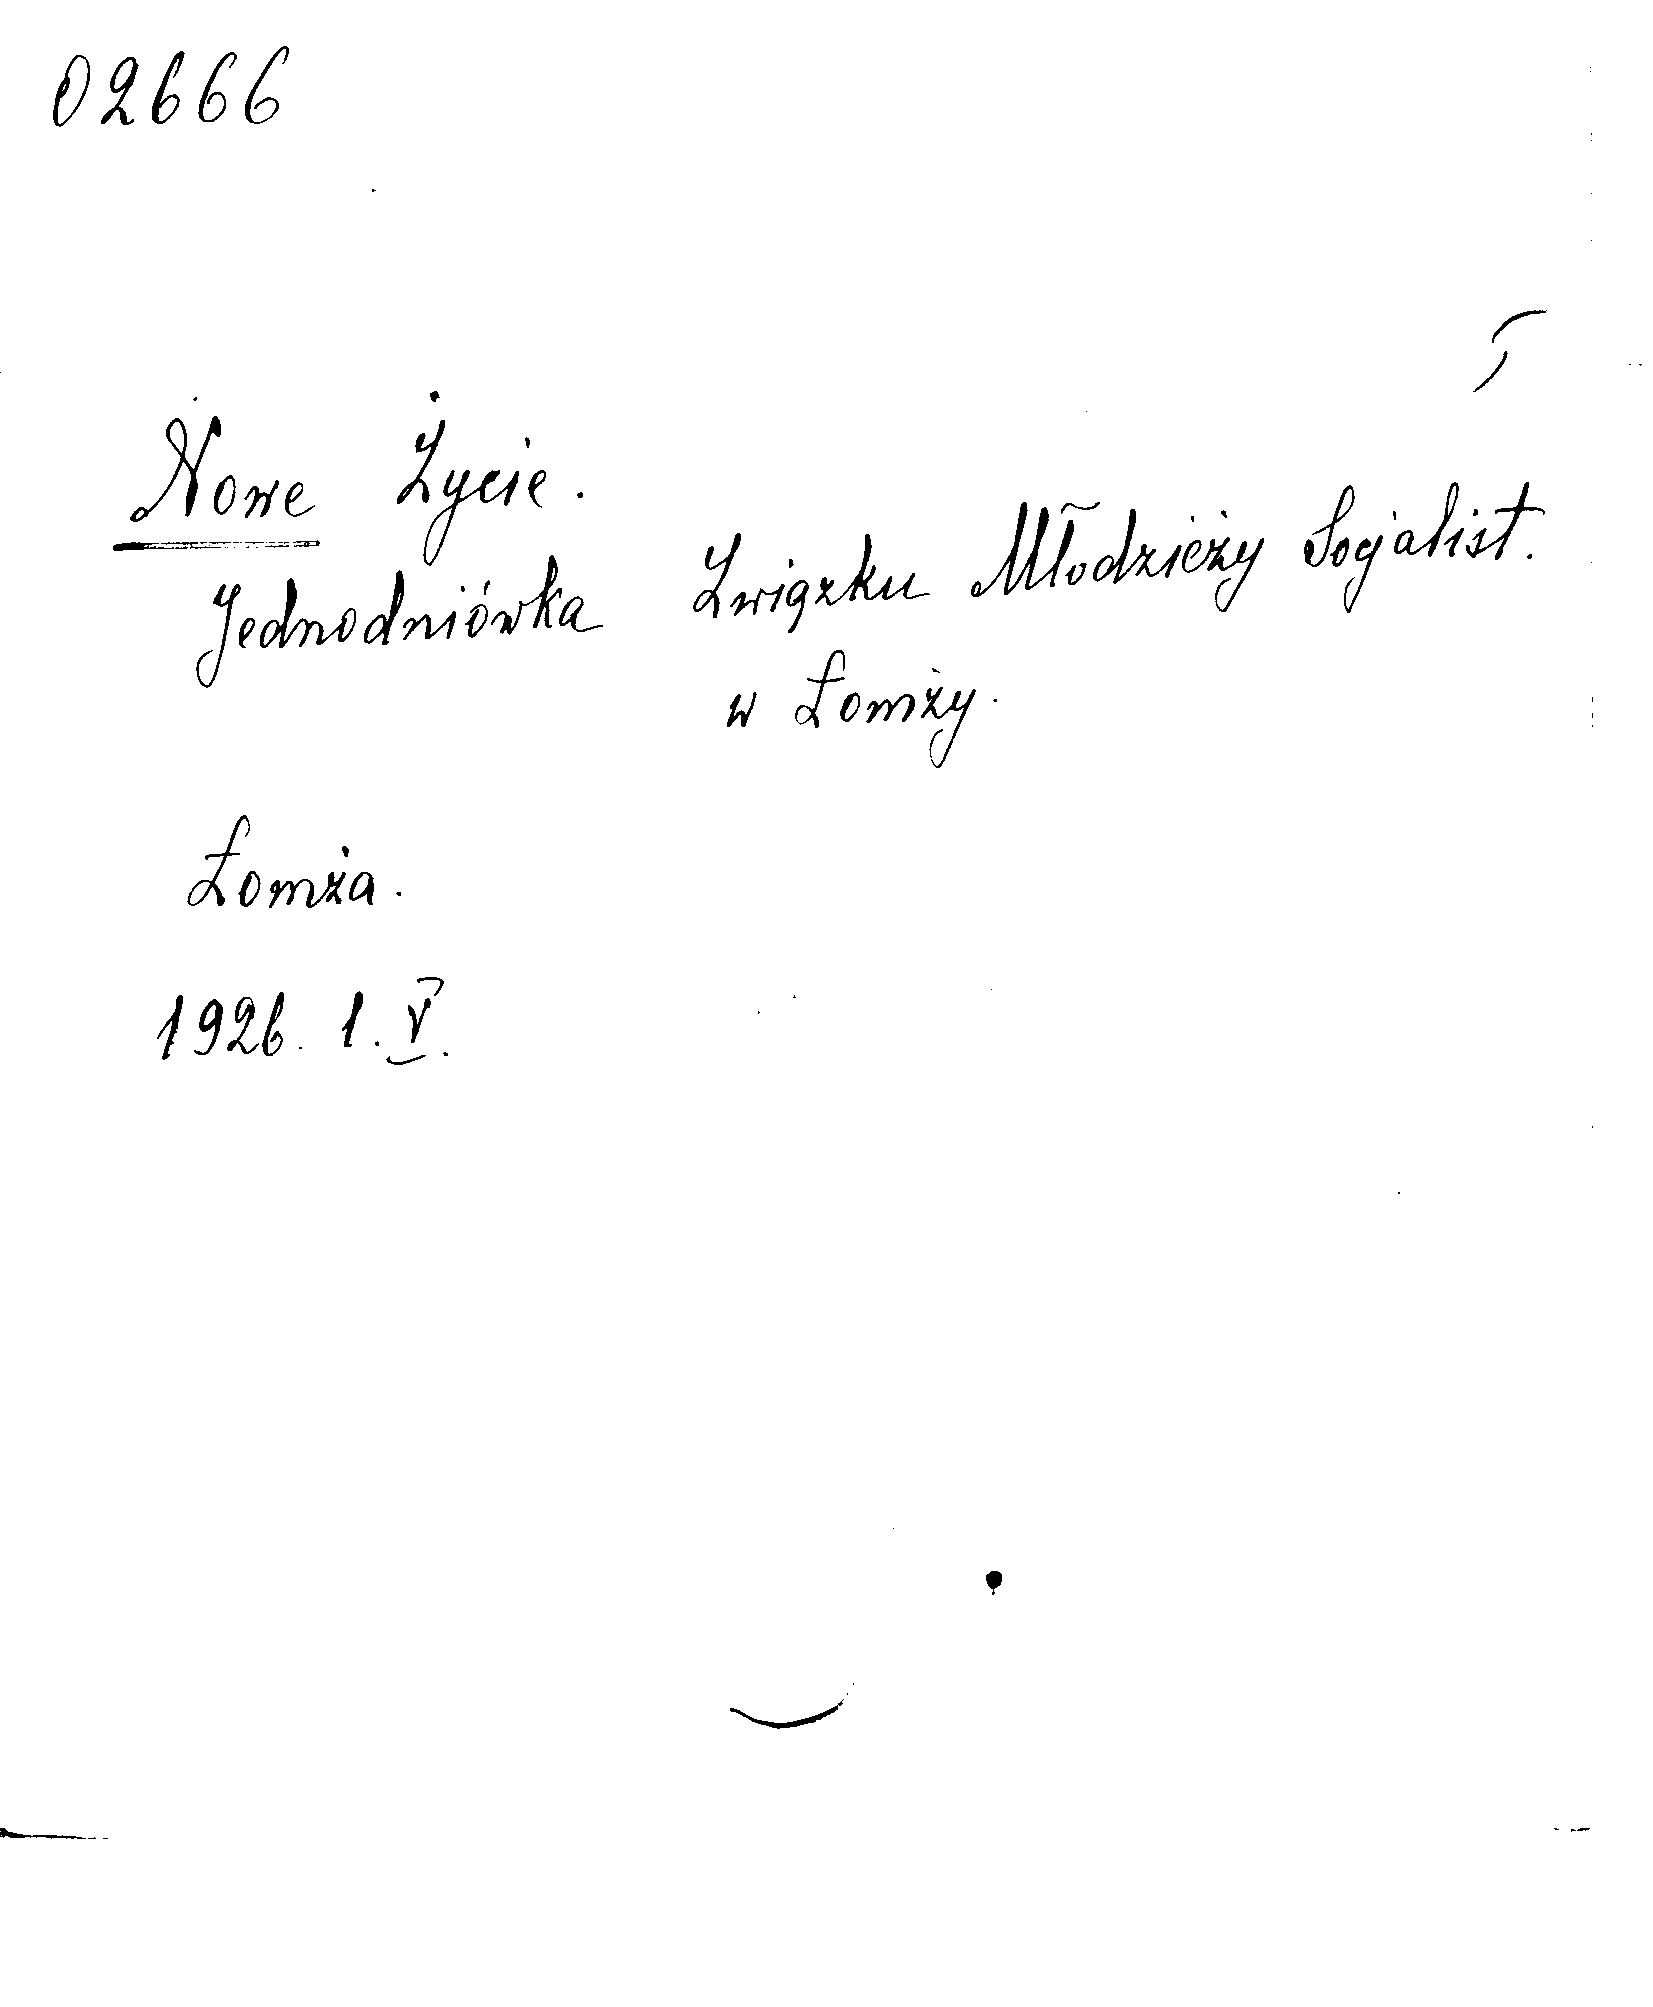 02666
Nowe Życie.
Jednodniówka Związku Młodzieży Socjalist.
w Łomży.
Łomża.
1926. 1. V.